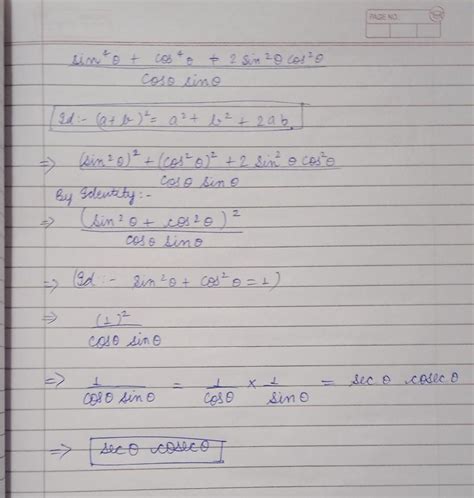 PAGE NO.:
sin⁴θ + cos⁴θ + 2 sin²θ cos²θ
cosθ sinθ
Id:- (a+b)² = a² + b² + 2ab
=> (sin²θ)² + (cos²θ)² + 2 sin²θ cos²θ
cosθ sinθ
By Identity:-
=> (sin²θ + cos²θ)²
cosθ sinθ
=> (Id:- sin²θ + cos²θ = 1)
=> (1)²
cosθ sinθ
=> 1 = 1 × 1 = secθ cosecθ
cosθ sinθ cosθ sinθ
=> secθ cosecθ